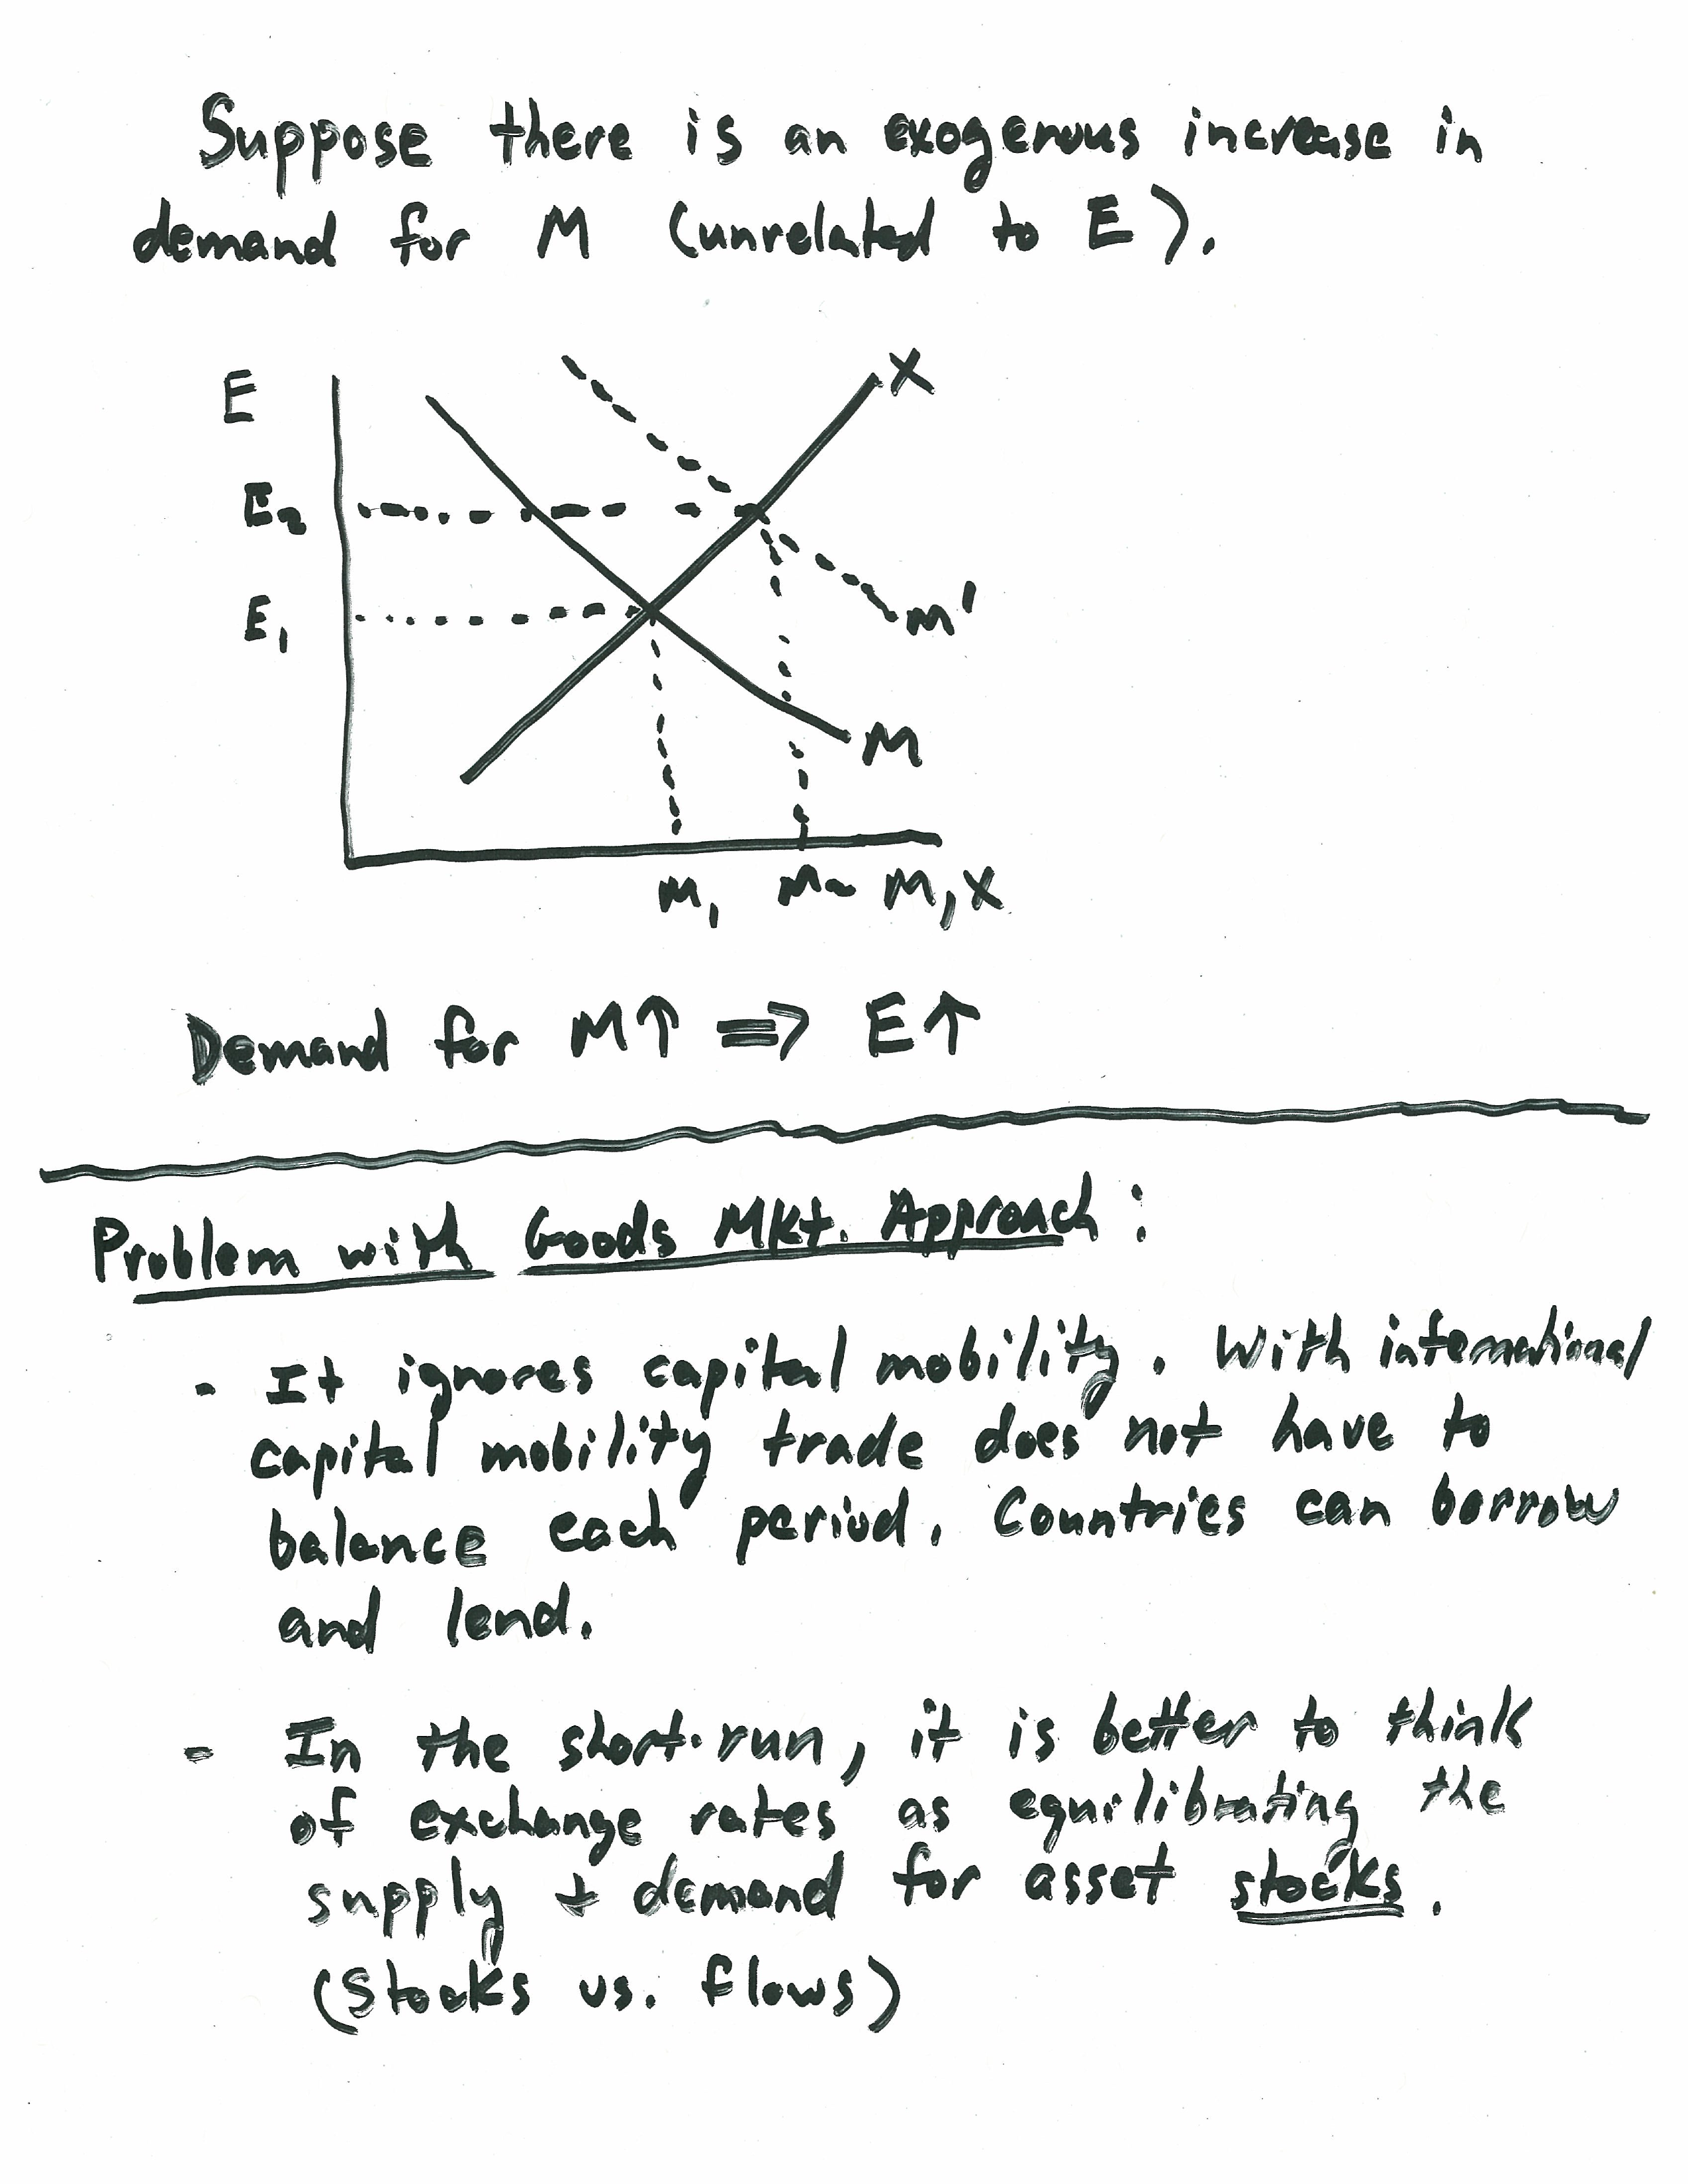 Suppose there is an exogenous increase in
demand for M (unrelated to E).
E
X
E₂
E₁
M'
M
M₁ M₂ M, X
Demand for M↑ => E↑
Problem with Goods Mkt. Approach:
- It ignores capital mobility. With international
capital mobility trade does not have to
balance each period. Countries can borrow
and lend.
- In the short-run, it is better to think
of exchange rates as equilibrating the
supply + demand for asset stocks.
(Stocks vs. flows)